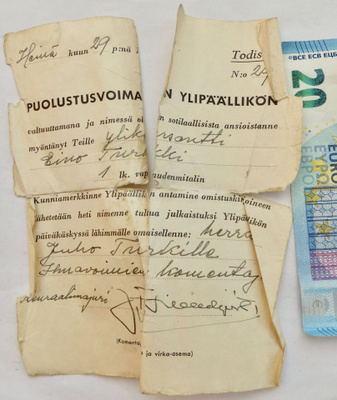 Heinä kuun 29 p:nä
Todis
N:o 29
PUOLUSTUSVOIMA N YLIPÄÄLLIKÖN
valtuuttamana ja nimessä ol sotilaallisista ansioistanne
myöntänyt Teille ylikersantti
Eino Turkki
1 lk. vapaudenmitalin
Kunniamerkkinne Ylipäällikön antamine omistuskirjoineen
lähetetään heti nimenne tultua julkaistuksi Ylipäällikön
päiväkäskyssä lähimmälle omaisellenne: herra
Juho Turkille
Ilmavoimien komentaj
kenraalimajuri
(Komenta
ja virka-asema)
20
BCE ECB ЕЦБ
EURO
ΕΥΡΩ
ЕВРО